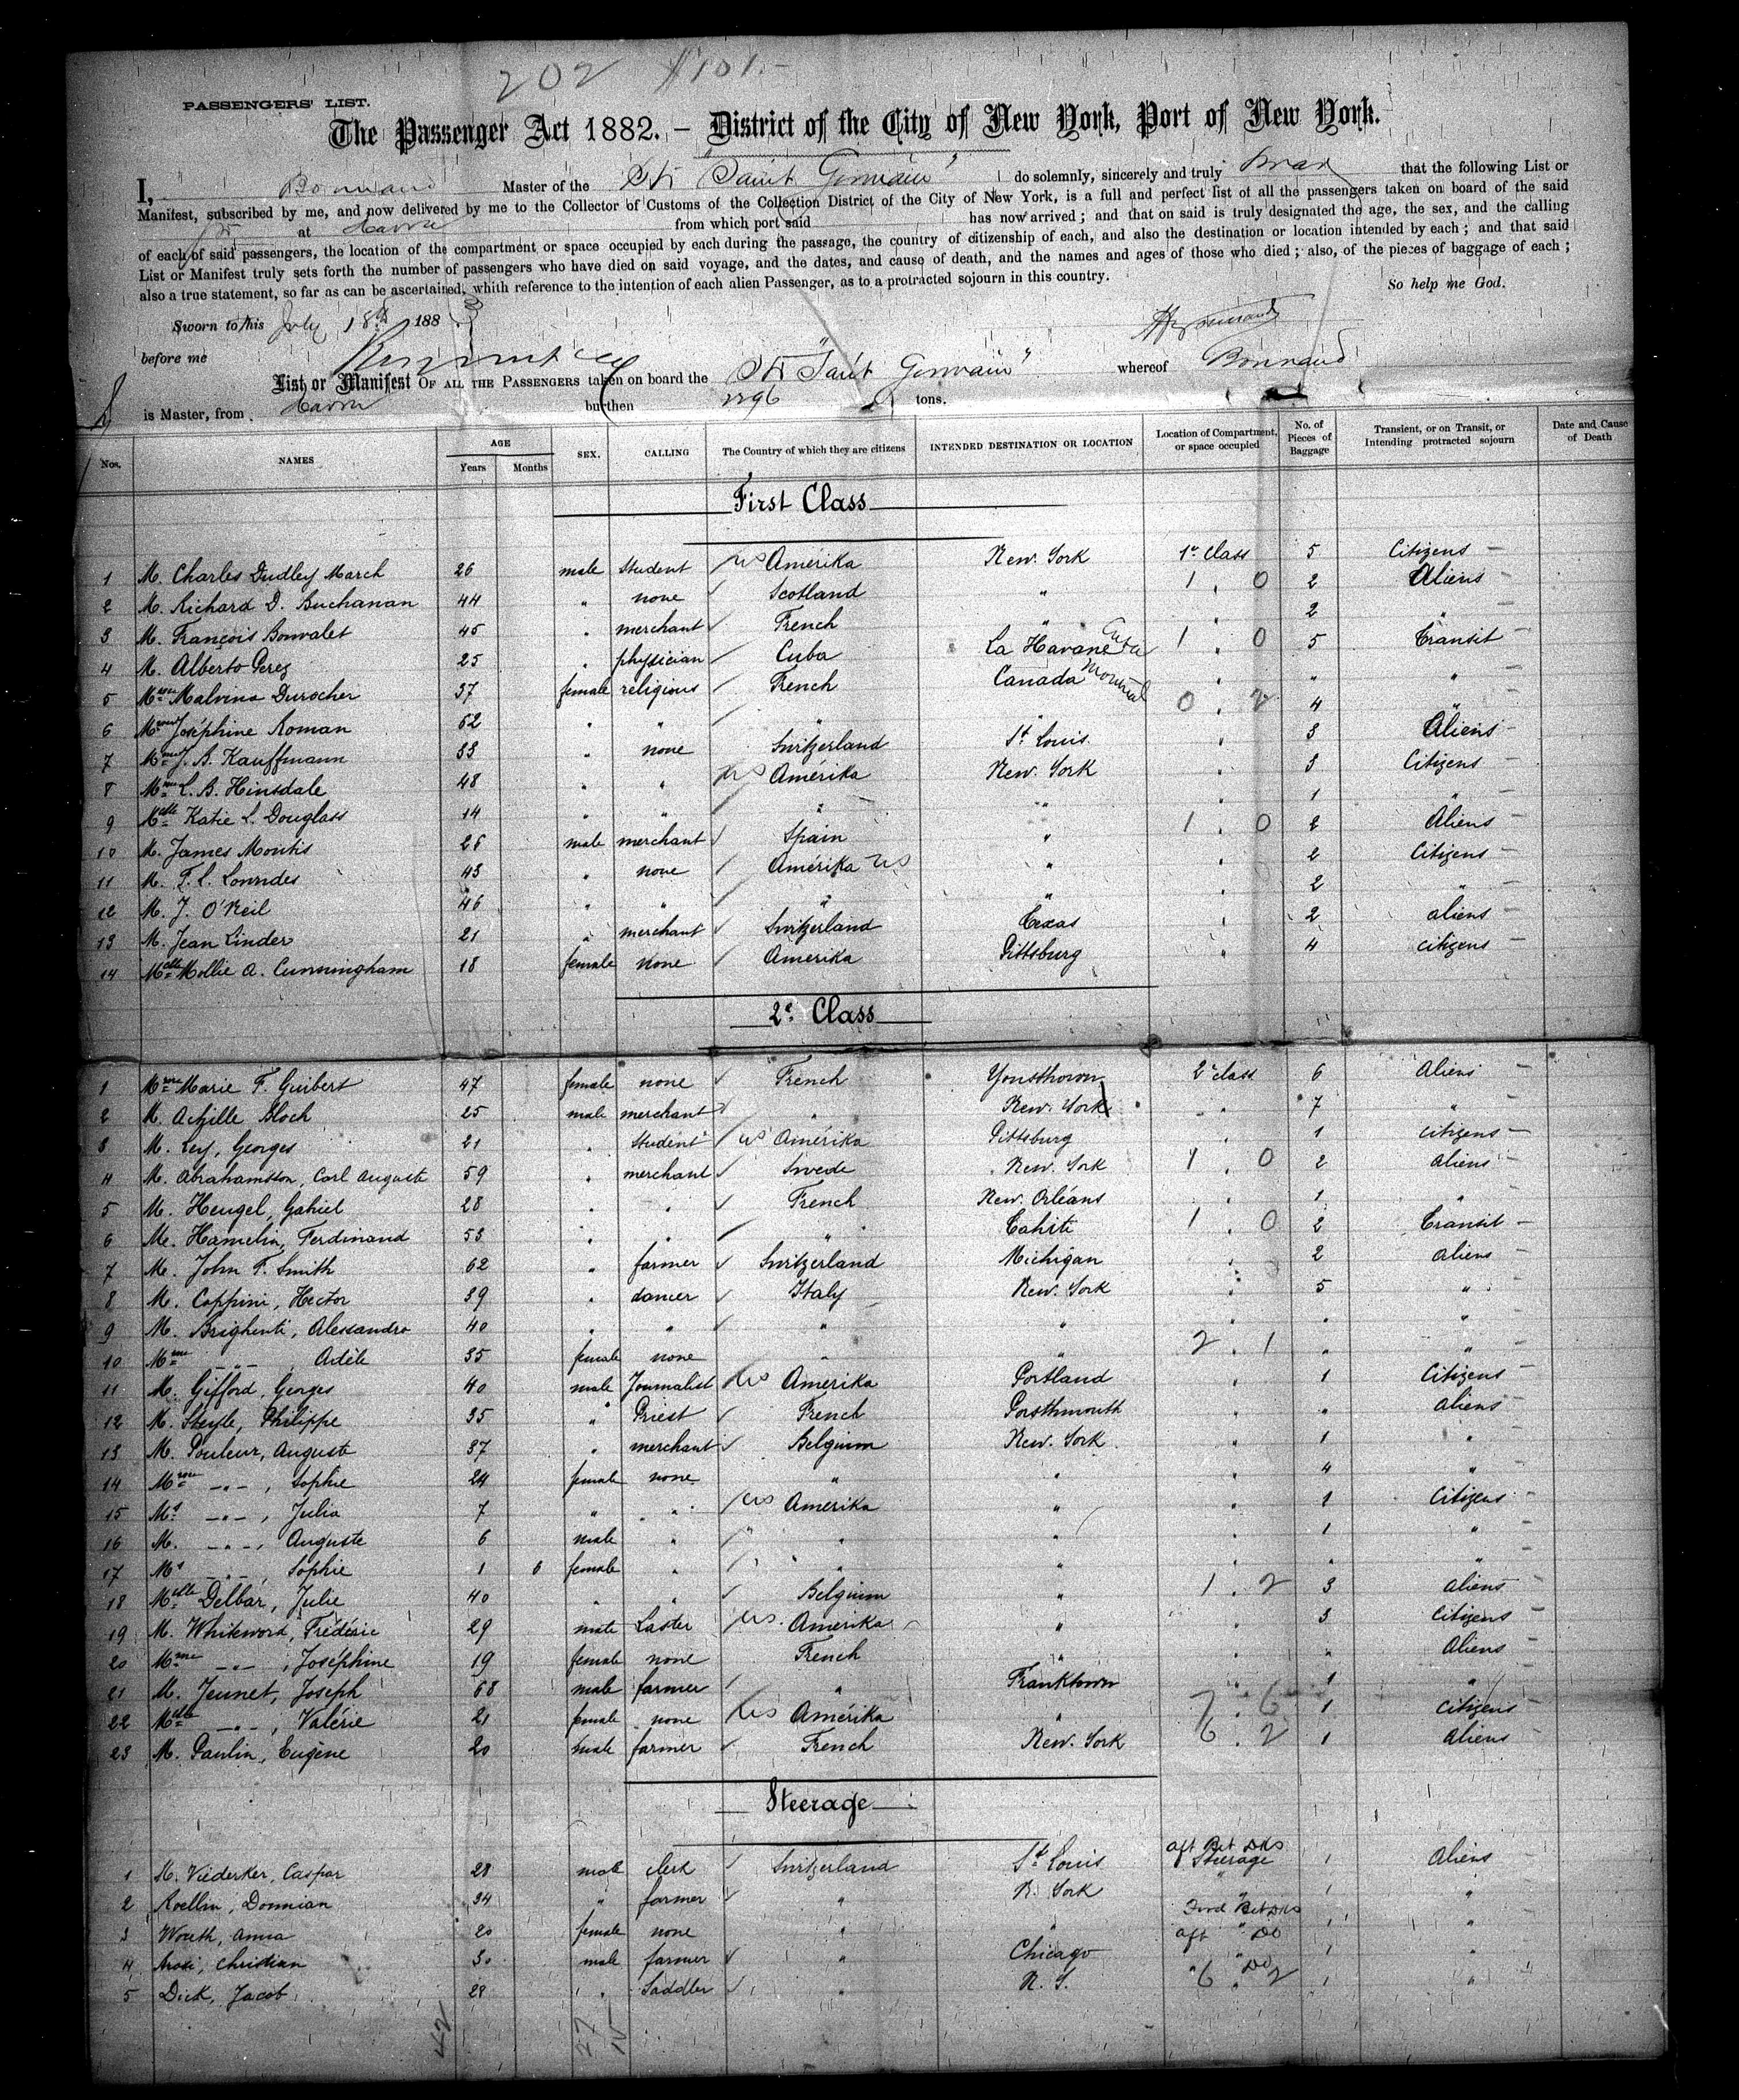 202 $101.-
PASSENGERS' LIST.
The Passenger Act 1882. — District of the City of New York, Port of New York.
I, Bonnaud Master of the Str "Saint Germain" do solemnly, sincerely and truly swear that the following List or
Manifest, subscribed by me, and now delivered by me to the Collector of Customs of the Collection District of the City of New York, is a full and perfect list of all the passengers taken on board of the said
Str at Havre from which port said has now arrived; and that on said is truly designated the age, the sex, and the calling
of each of said passengers, the location of the compartment or space occupied by each during the passage, the country of citizenship of each, and also the destination or location intended by each; and that said
List or Manifest truly sets forth the number of passengers who have died on said voyage, and the dates, and cause of death, and the names and ages of those who died; also, of the pieces of baggage of each;
also a true statement, so far as can be ascertained, whith reference to the intention of each alien Passenger, as to a protracted sojourn in this country. So help me God.
Sworn to this July 18th 1883
before me
List or Manifest OF ALL THE PASSENGERS taken on board the Str "Saint Germain" whereof Bonnaud
is Master, from Havre burthen tons.
Nos. NAMES AGE Years Months SEX. CALLING The Country of which they are citizens INTENDED DESTINATION OR LOCATION Location of Compartment, or space occupied No. of Pieces of Baggage Transient, or on Transit, or Intending protracted sojourn Date and Cause of Death
First Class
1 M. Charles Dudley March 26 male student us Amérika New. York 1e Class 5 Citizens –
2 M. Richard D. Buchanan 44 " none Scotland " 1 . 0 2 Aliens –
3 M. François Bonvalet 45 " merchant French " " 2 " –
4 M. Alberto Perez 25 " physician Cuba La Havane Cuba 1 . 0 5 Transit –
5 Mme Malvina Durocher 37 female religious French Canada Montreal " " "
6 Mme Joséphine Roman 62 " " " " 0 . 2 4 "
7 Mme J. B. Kauffmann 33 " none Switzerland St Louis " 3 Aliens –
8 Mme L. B. Hinsdale 48 " " us Amérika New. York " 3 Citizens –
9 Melle Katie L. Douglass 14 " " " " " 1 "
10 M. James Montis 26 male merchant Spain " 1 . 0 2 Aliens –
11 M. F. L. Lowndes 43 " none Amérika US " " 2 Citizens –
12 M. J. O'Neil 46 " " " " " 2 " –
13 M. Jean Linder 21 " merchant Switzerland Texas " 2 aliens –
14 Melle Mollie A. Cunningham 18 female none Amérika Pittsburg " 4 citizens –
2e Class
1 Mme Marie F. Guibert 47 female none French Yonsthown 2e class 6 Aliens –
2 M. Achille Bloch 25 male merchant " New. York " 7 " –
3 M. Ley, Georges 21 " student us Amérika Pittsburg " 1 citizens –
4 M. Abrahamsson, Carl Auguste 59 " merchant Swede New. York 1 . 0 2 aliens –
5 M. Hengel, Gabriel 28 " " French New. Orléans " 1 " –
6 M. Hamelin, Ferdinand 53 " " " Tahiti 1 . 0 2 Transit –
7 M. John F. Smith 62 " farmer Switzerland Michigan " 2 aliens –
8 M. Coppini, Hector 39 " dancer Italy New. York " 5 "
9 M. Brighenti, Alessandro 40 " " " " " " "
10 Mme –"– , Adèle 35 female none " " 2 . 1 " "
11 M. Gifford, Georges 40 male Journalist us Amérika Portland " 1 Citizens –
12 M. Philippe 35 " Priest French Porsthmouth " " aliens
13 M. Pouleur, Auguste 37 " merchant Belgium New. York " 1 "
14 Mme –"– , Sophie 24 female none " " " 4 "
15 Ms –"– , Julia 7 " " us Amérika " " 1 Citizens –
16 M. –"– , Auguste 6 male " " " " 1 "
17 Ms –"– , Sophie 1 6 female " " " " " "
18 Melle Delbar, Julie 40 " " Belgium " 1 . 2 3 aliens –
19 M. Whiteword, Frédéric 29 male Laster us. Amérika " " 3 Citizens –
20 Mme –"– , Joséphine 19 female none French " " " Aliens –
21 M. Jeunet, Joseph 68 male farmer " Franktown " 1 "
22 Melle –"– , Valérie 21 female none us Amérika " 7 . 6 1 Citizens –
23 M. Paulin, Eugène 20 male farmer French New. York 6 . 2 1 aliens –
Steerage
1 M. Viederker, Caspar 28 male clerk Switzerland St Louis aft Bet Dks Steerage 1 Aliens –
2 Roellin, Domnian 34 " farmer " N. York " 1 "
3 Woeth, Anna 20 female none " " Forwd Bet Dks aft " Do 1 "
4 Christian 30 male farmer " Chicago " " Do 1 "
5 Dick, Jacob 28 " Saddler " N. Y. 6 . 2 1 "
42 27 15